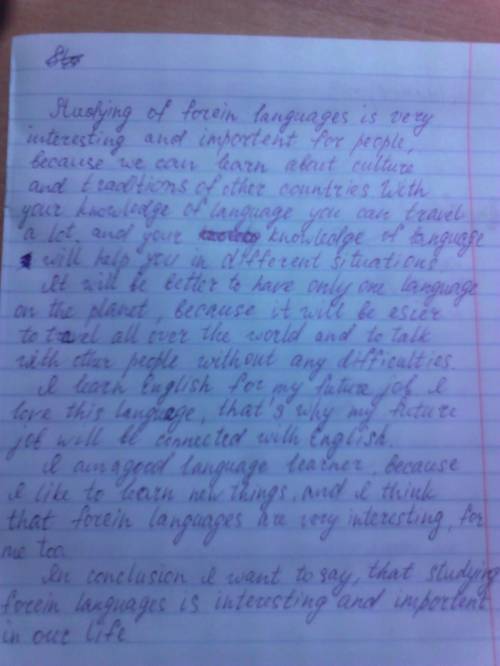 Studying of forein languages is very
interesting and importent for people,
because we can learn about culture
and traditions of other countries. With
your knowledge of language you can travel
a lot, and your knowledge of language
will help you in different situations.
It will be better to have only one language
on the planet, because it will be esier
to travel all over the world and to talk
with other people without any difficulties.
I learn English for my future job. I
love this language, that's why my future
job will be connected with English.
I am a good language learner, because
I like to learn new things, and I think
that forein languages are very interesting, for
me too.
In conclusion I want to say, that studying
forein languages is interesting and importent
in our life